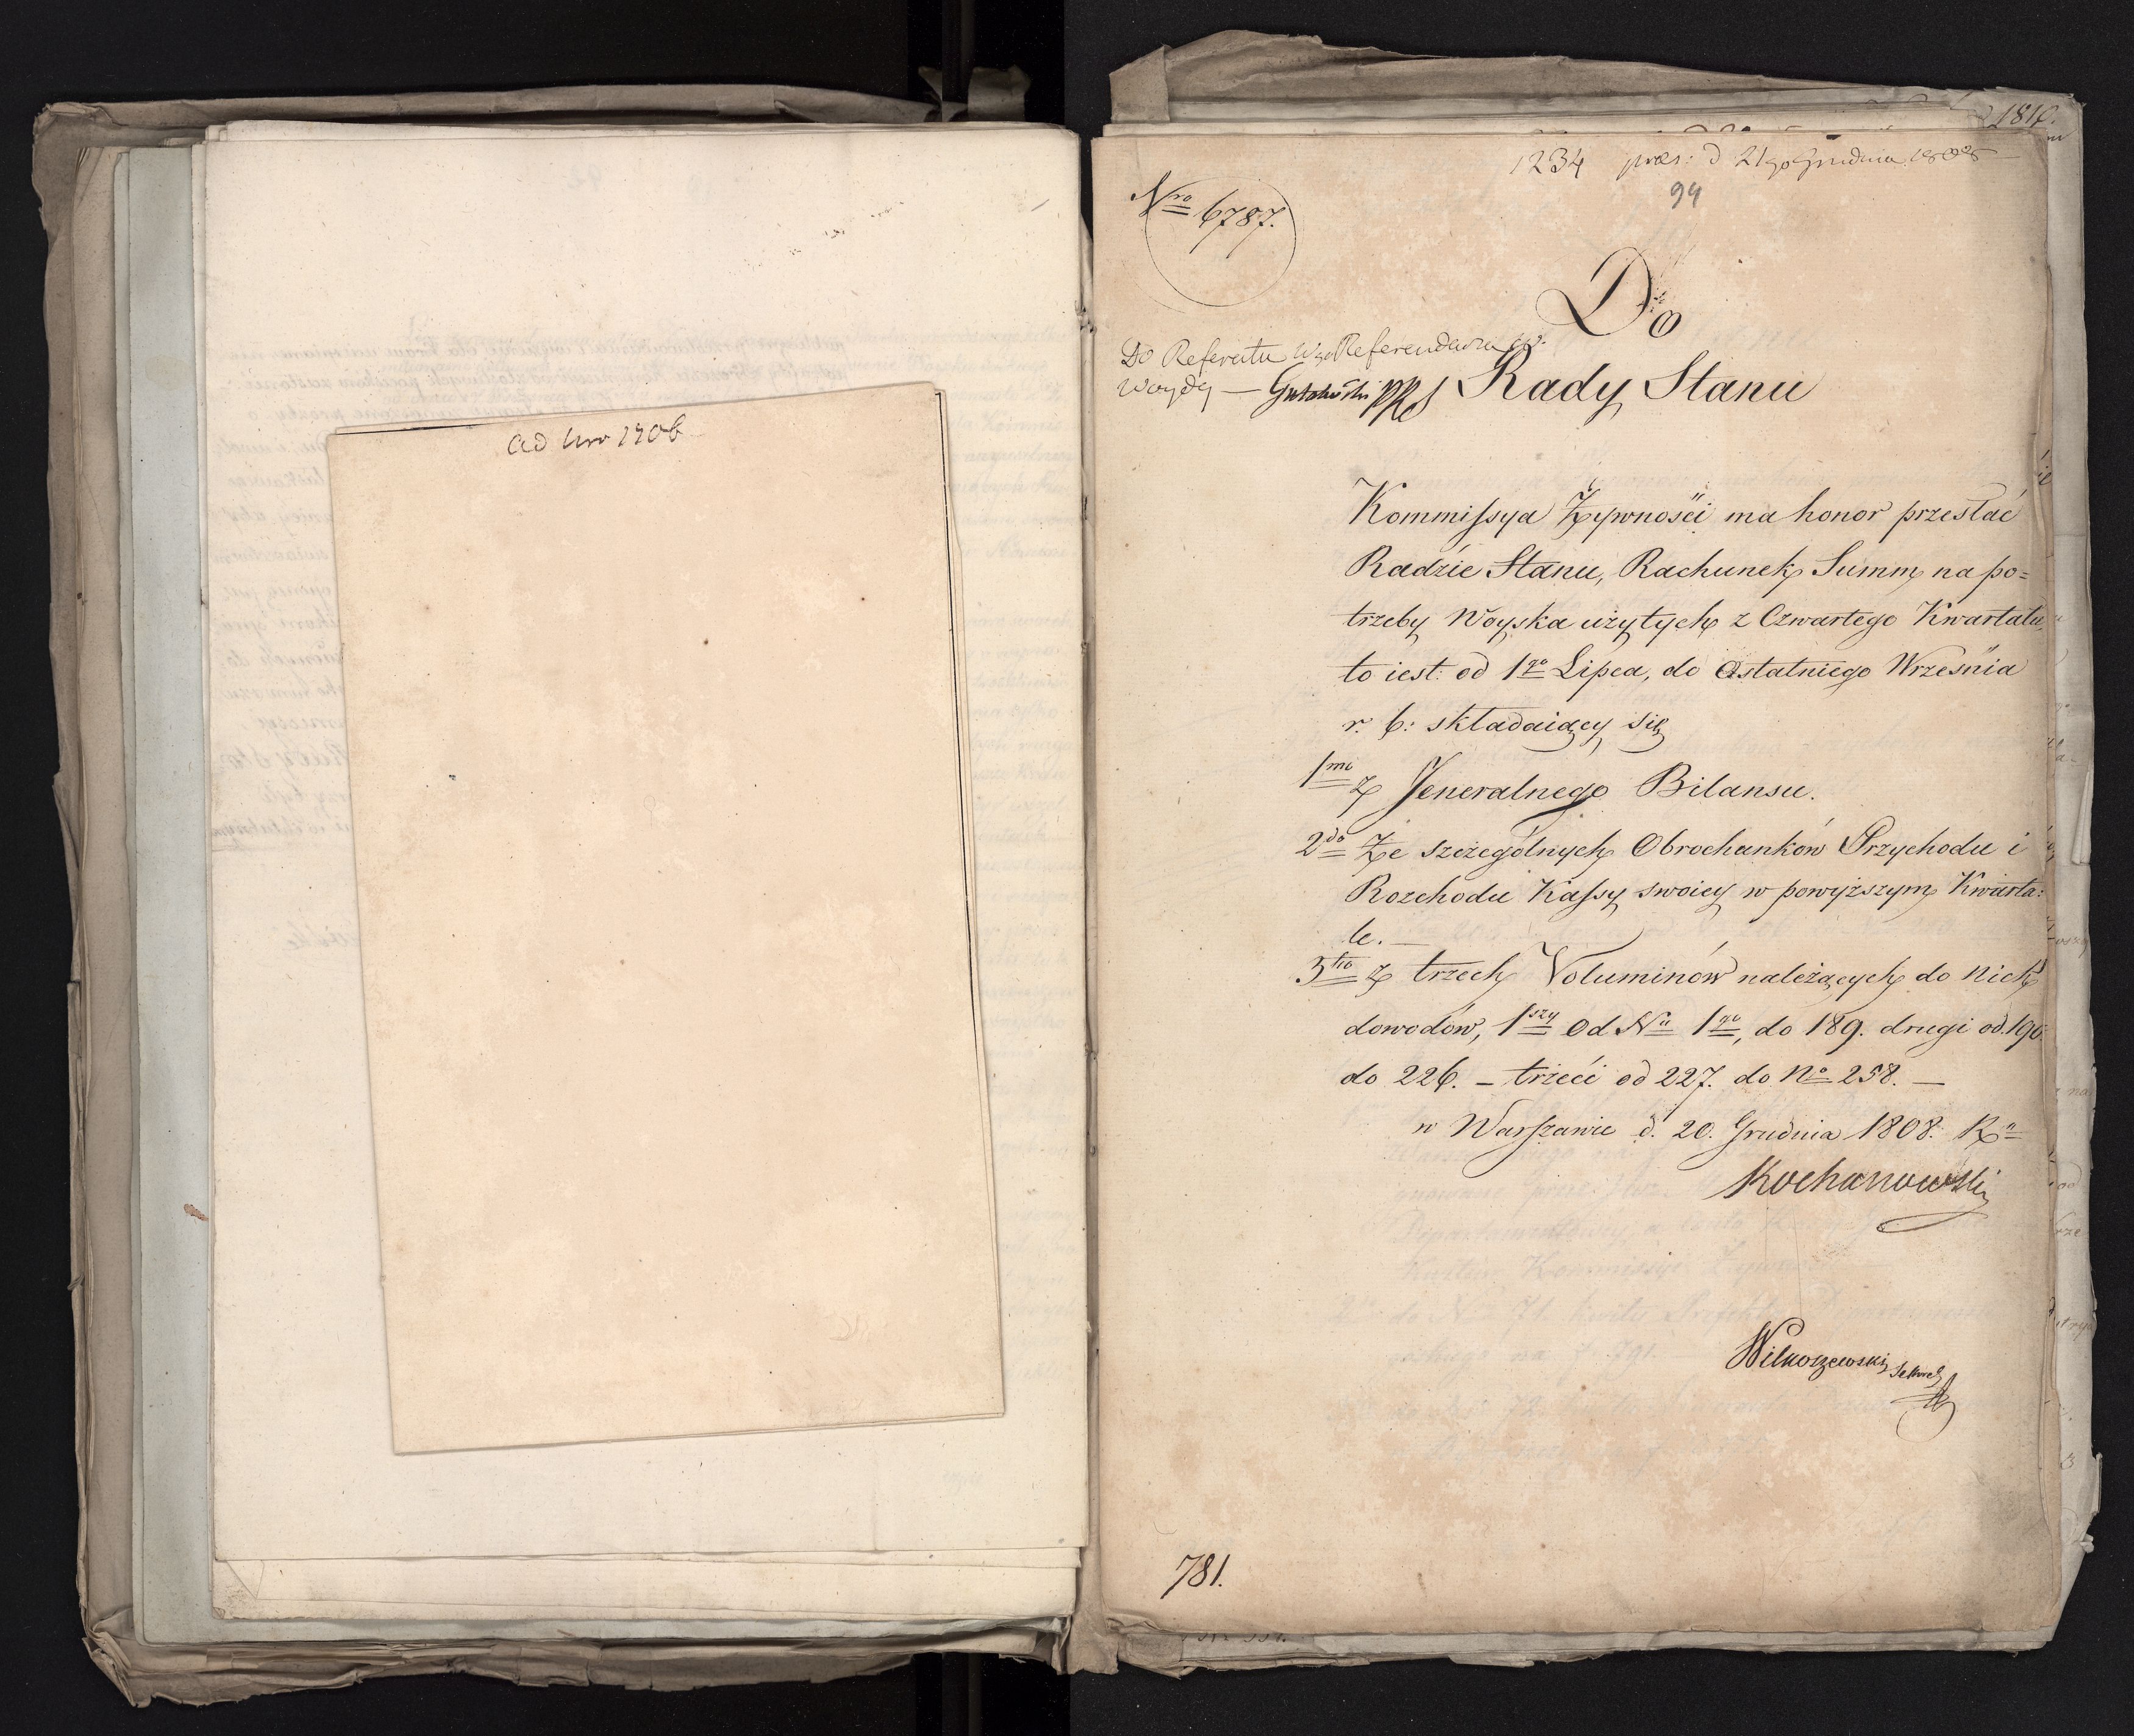 ad Nro 1206
1234 praes: d 21go Grudnia 1808
94
Nro 6787.
Do
Do Referatu Wgo Referendarza
Woydy — Gutakowski PRS
Rady Stanu
Kommissya Żywności ma honor przesłać
Radzie Stanu, Rachunek Summ na po=
trzeby Woyska użytych z Czwartego Kwartału,
to iest: od 1go Lipca, do Ostatniego Września
r. b: składaiący się
1mo z Jeneralnego Bilansu.
2do Ze szczególnych Obrachunków Przychodu i
Rozchodu Kassy swoiey w powyższym Kwarta=
le. —
3tio z trzech Voluminów należących do nich
dowodów, 1szy Od Nu 1go, do 189. drugi od 190.
do 226. – trzeci od 227. do No 258. —
w Warszawie d. 20. Grudnia 1808. Ru
Kochanowski
Wilkoszewski Sekret
781.